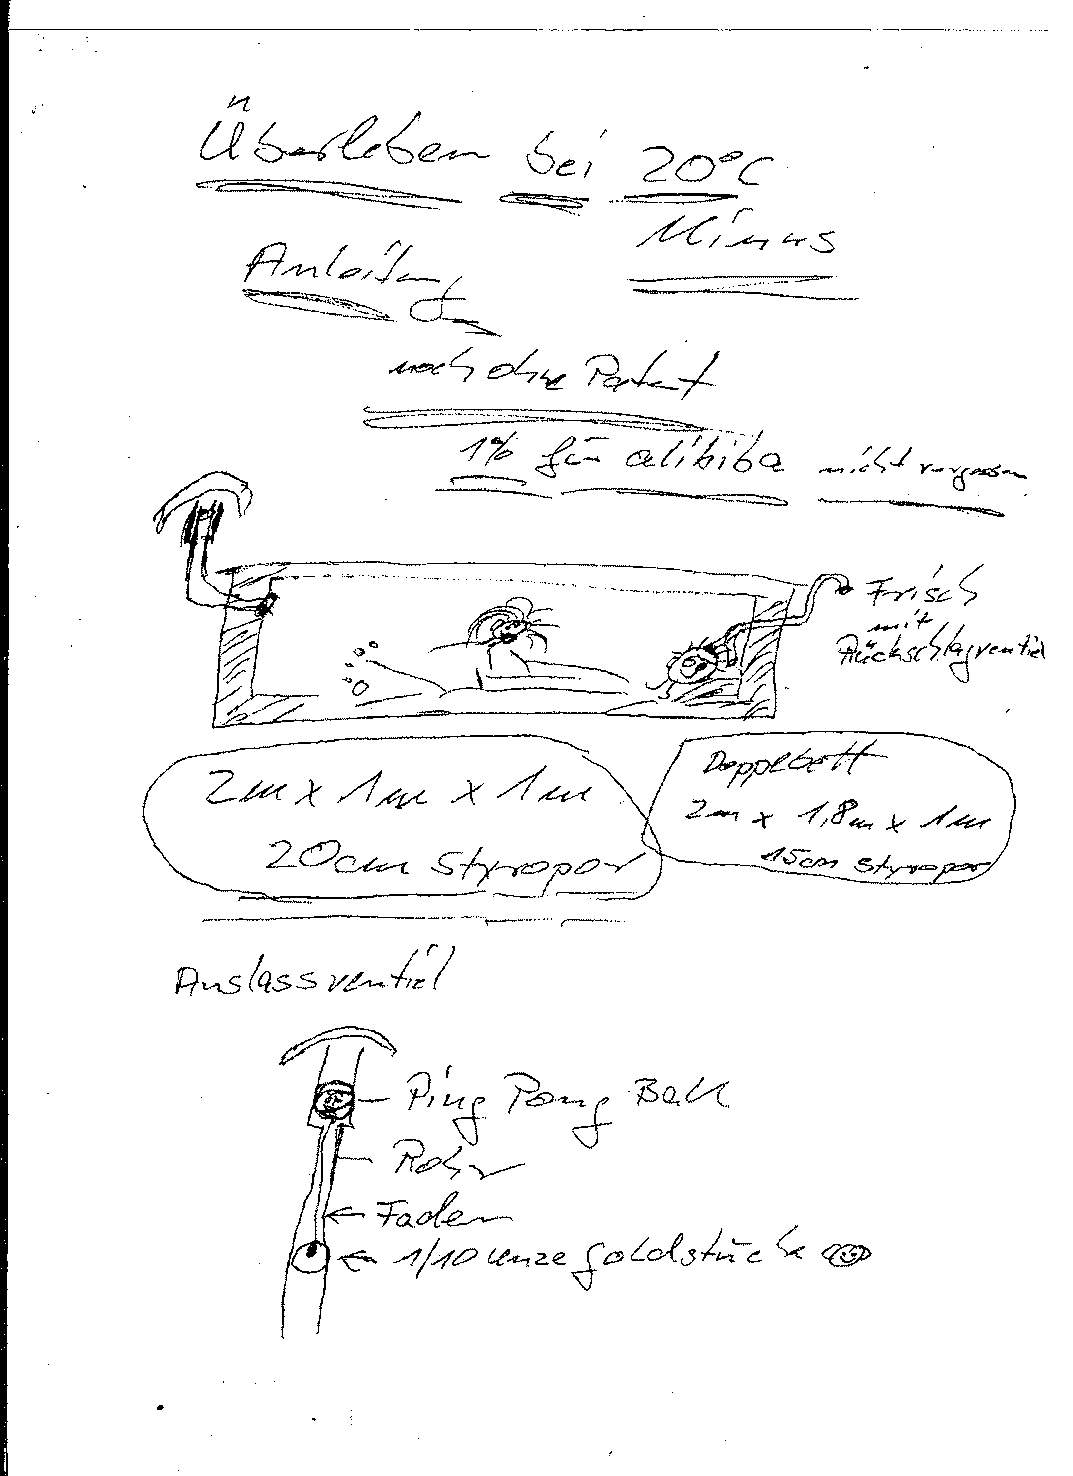 Überleben bei 20°C
Minus
Anleitung
noch ohne Patent
1% für alibiba nicht vergessen
Frisch
mit
Rückschlagventiel
2m x 1m x 1m
20cm Styropor
Doppelbett
2m x 1,8m x 1m
15cm Styropor
Auslassventiel
Ping Pong Ball
Rohr
Faden
1/10 unze goldstück